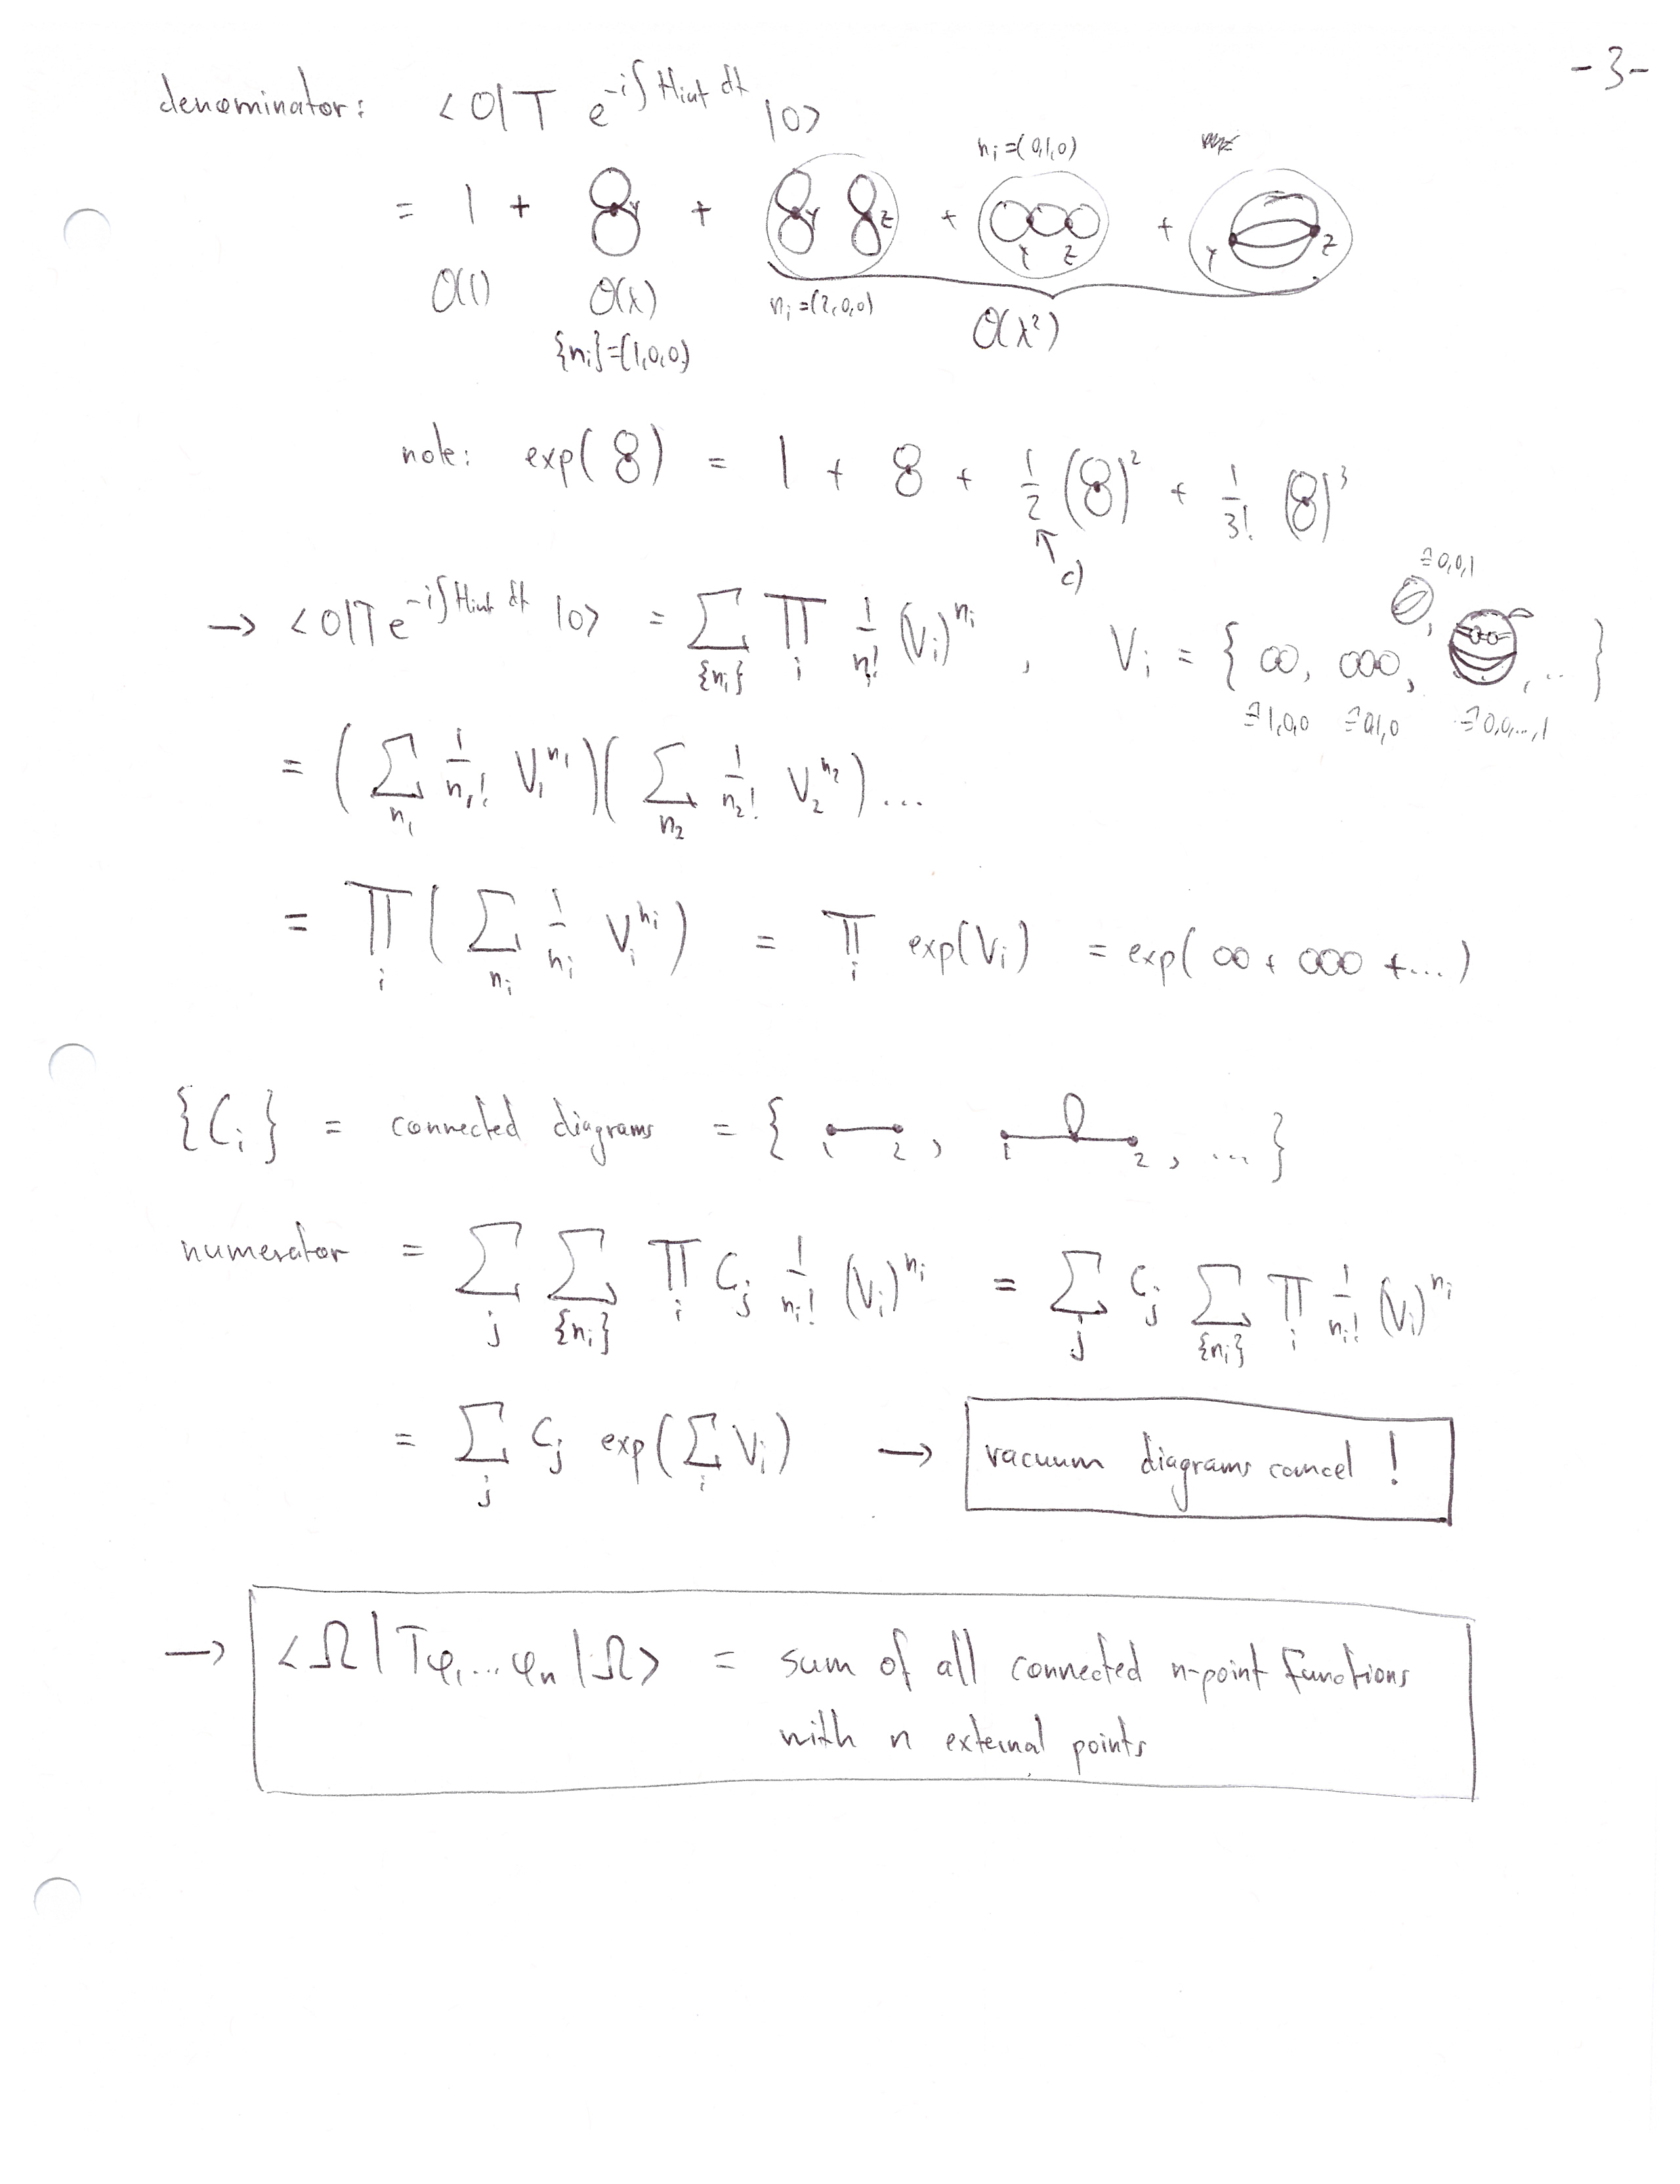 -3-
denominator: <0|T e^{-i∫Hint dt} |0>
n_i=(0,1,0)
= 1 + 8 + 8 8 + ooo +
y y z y z y z
O(1) O(λ) n_i=(2,0,0) O(λ²)
{n_i}=(1,0,0)
note: exp(8) = 1 + 8 + 1/2 (8)² + 1/3! (8)³
↑ c)
≙0,0,1
→ <0|Te^{-i∫Hint dt} |0> = ∑_{{n_i}} ∏_i 1/n_i! (V_i)^{n_i} , V_i = { oo, ooo, , , ... }
≙1,0,0 ≙0,1,0 ≙0,0,...,1
= (∑_{n_1} 1/n_1! V_1^{n_1})(∑_{n_2} 1/n_2! V_2^{n_2})...
= ∏_i (∑_{n_i} 1/n_i V_i^{n_i}) = ∏_i exp(V_i) = exp( oo + ooo +...)
{C_i} = connected diagrams = { 1 2 , 1 2 , ... }
numerator = ∑_j ∑_{{n_i}} ∏_i C_j 1/n_i! (V_i)^{n_i} = ∑_j C_j ∑_{{n_i}} ∏_i 1/n_i! (V_i)^{n_i}
= ∑_j C_j exp(∑_i V_i) → vacuum diagrams cancel !
→ <Ω|Tφ_1...φ_n|Ω> = sum of all connected n-point functions
with n external points